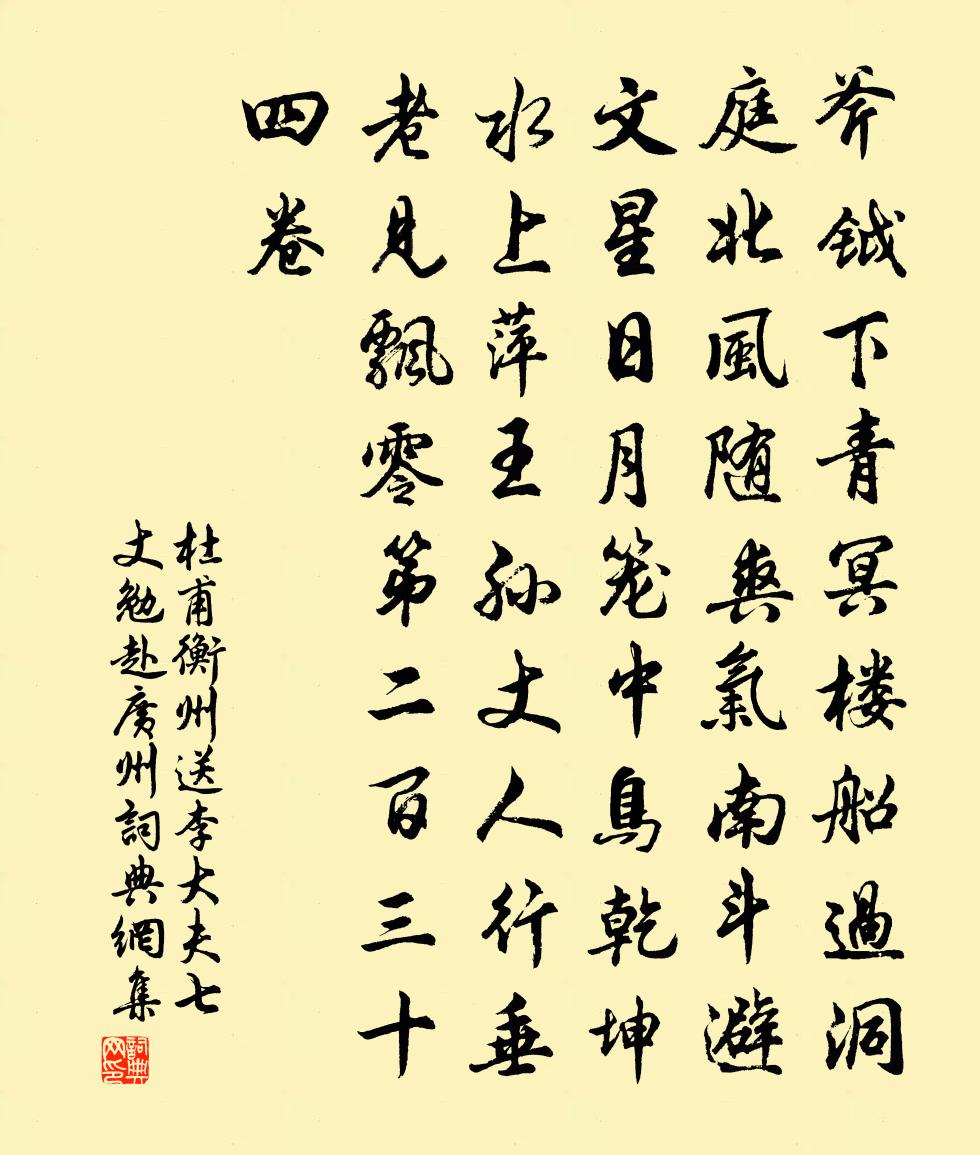 斧钺下青冥楼船過洞
庭北風随爽氣南斗避
文星日月笼中鳥乾坤
水上萍王孙丈人行垂
老見飄零第二百三十
四卷
杜甫衡州送李大夫七
丈勉赴廣州詞典網集
詞典网印